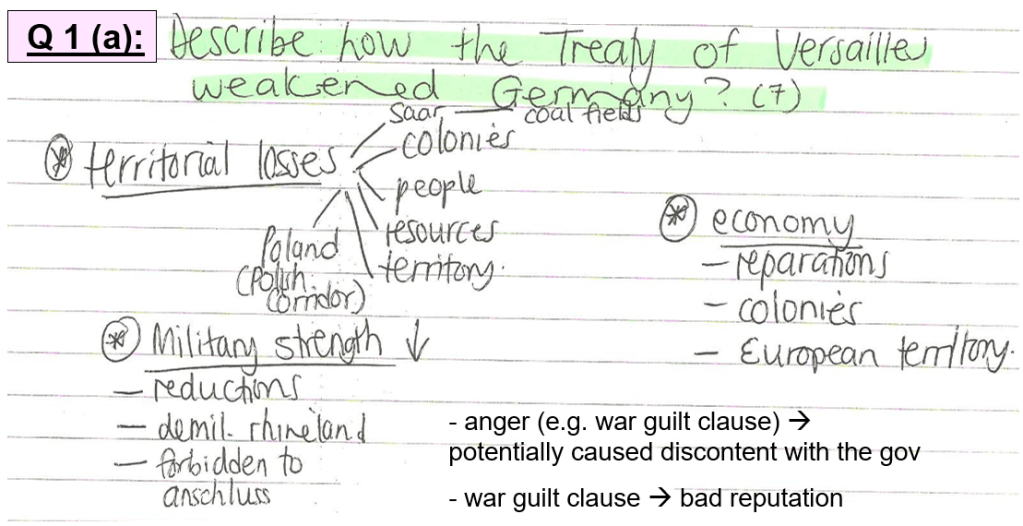 Q 1 (a): Describe how the Treaty of Versailles
weakened Germany? (7)
* territorial losses
Saar — coal fields
colonies
people
resources
territory.
Poland
(Polish
Corridor)
* economy
- reparations
- colonies
- European territory.
* Military strength ↓
- reductions
- demil. rhineland
- forbidden to
anschluss
- anger (e.g. war guilt clause) →
potentially caused discontent with the gov
- war guilt clause → bad reputation